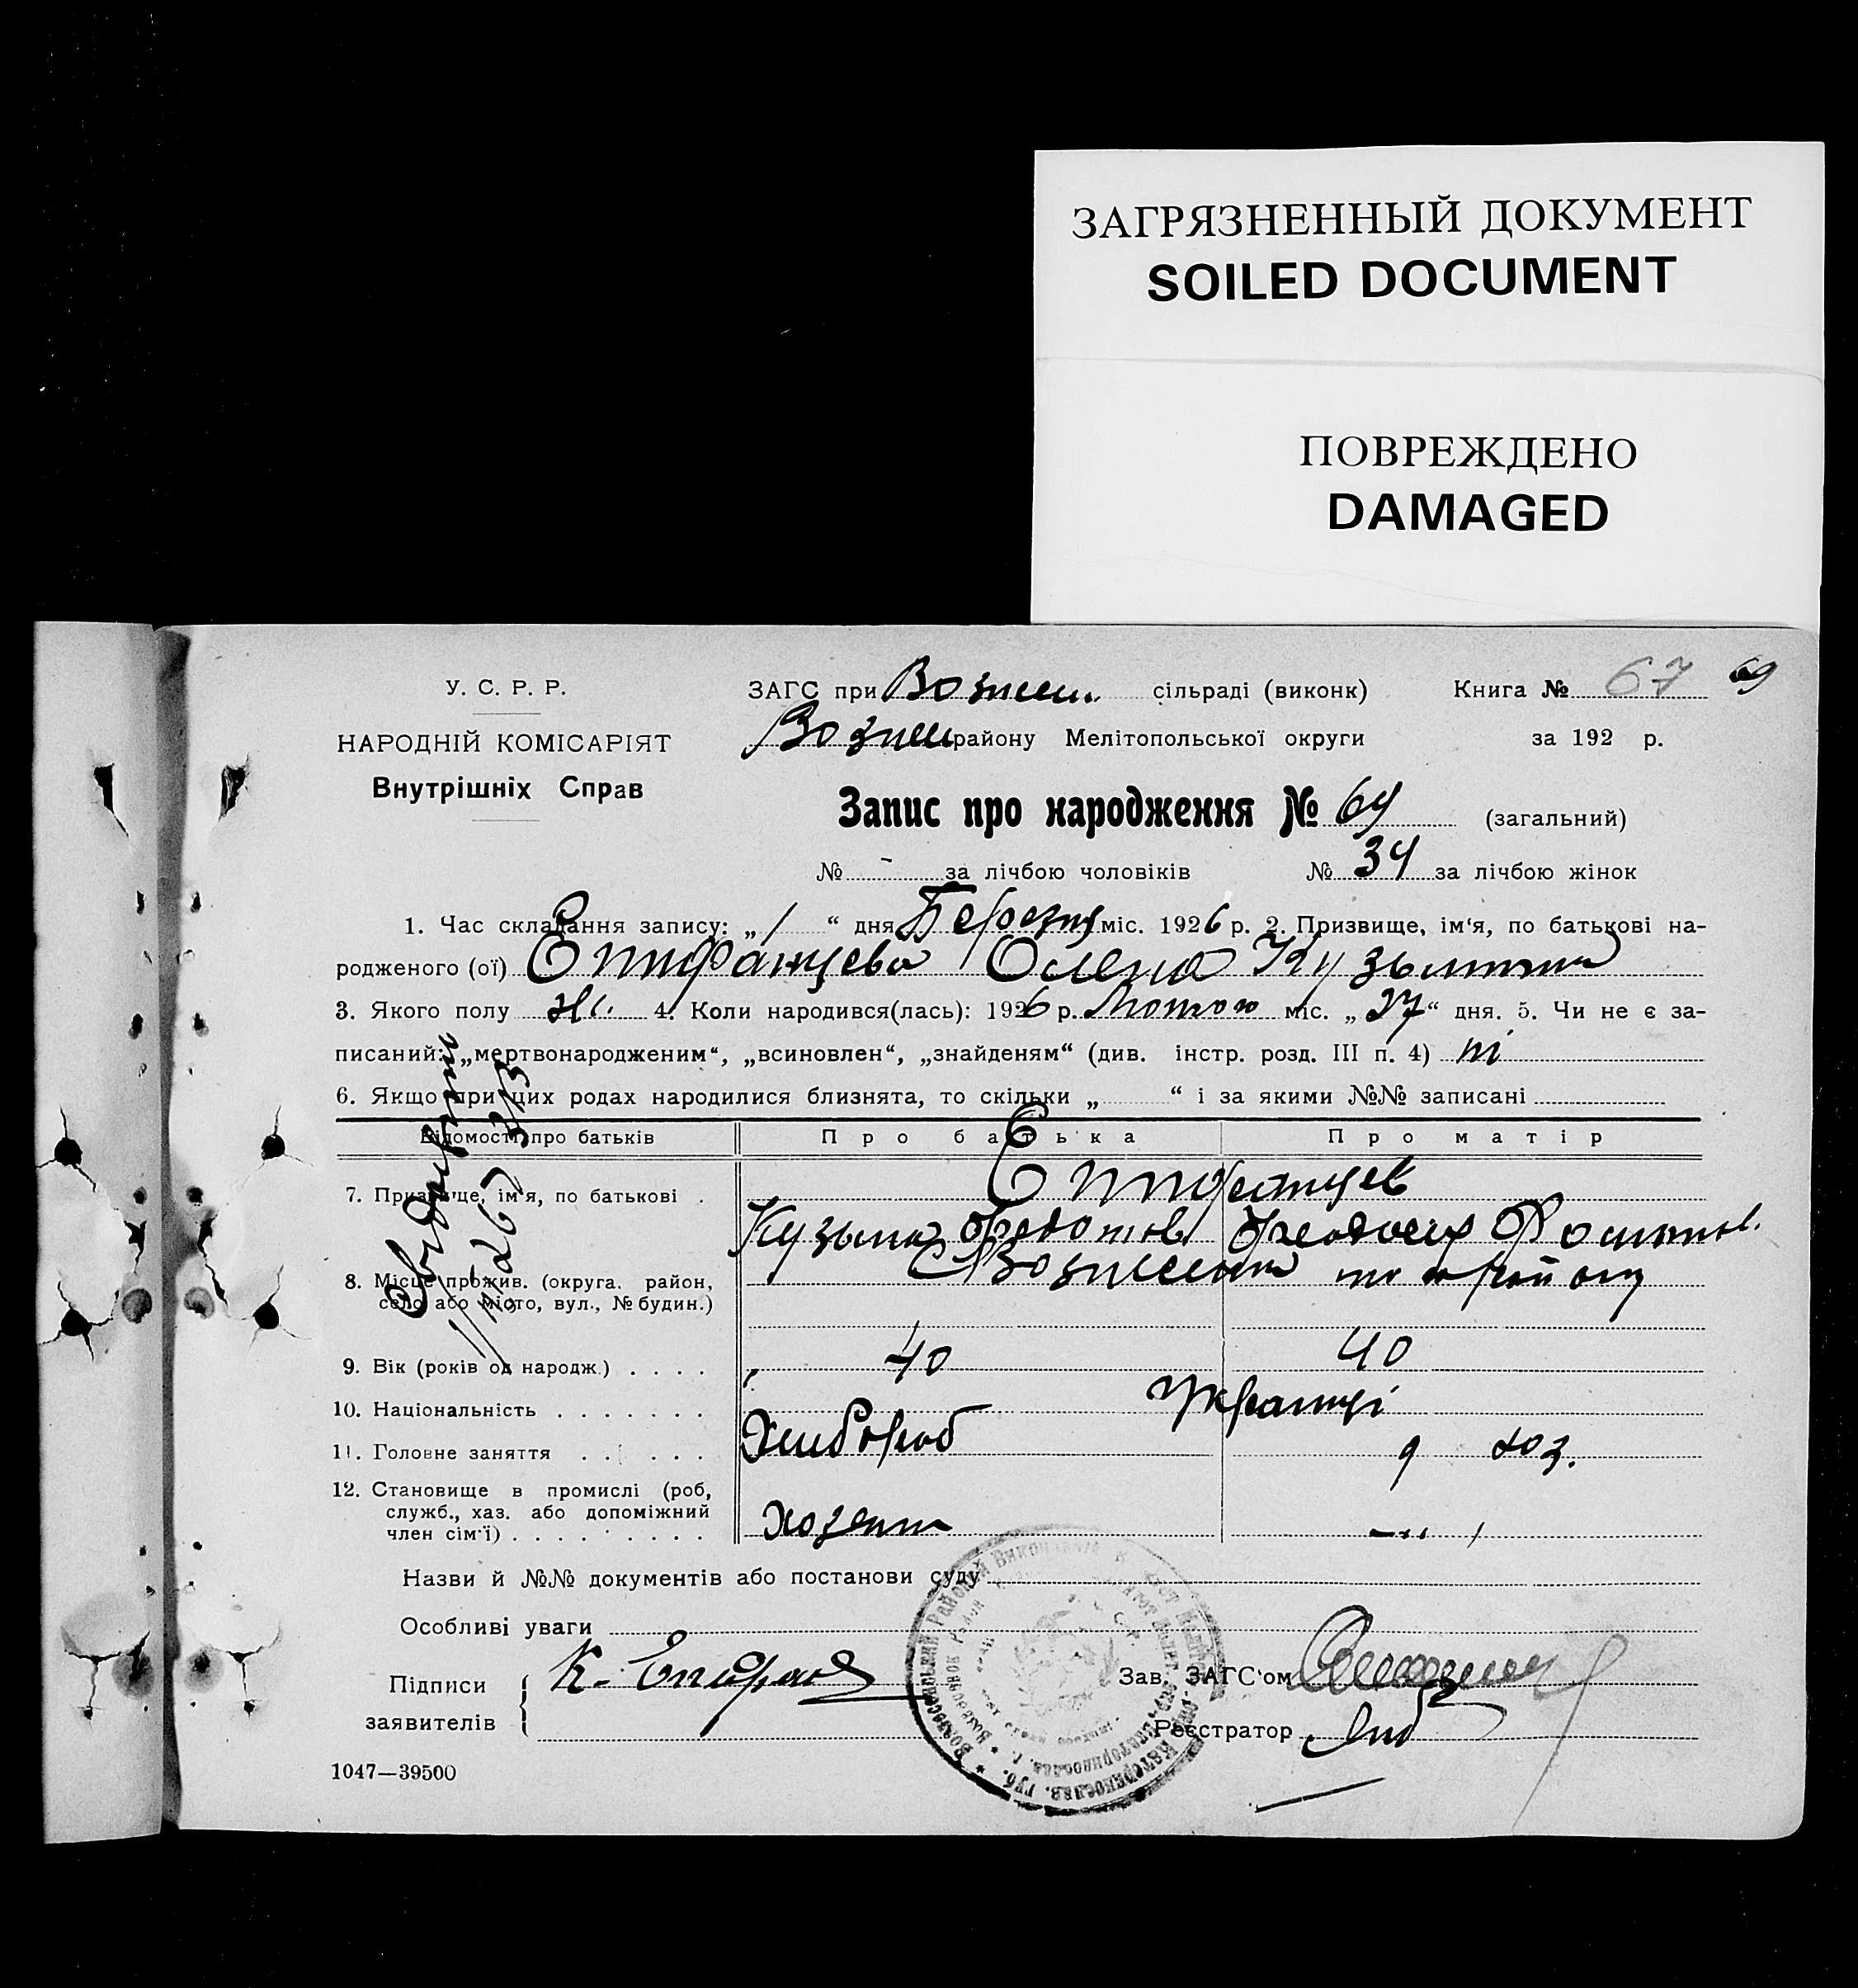 ЗАГРЯЗНЕННЫЙ ДОКУМЕНТ
SOILED DOCUMENT
ПОВРЕЖДЕНО
DAMAGED
У. С. Р. Р.
НАРОДНІЙ КОМІСАРІЯТ
Внутрішніх Справ
ЗАГС при Вознесен. сільраді (виконк) Книга № 67 69
Вознес району Мелітопольської округи за 192 р.
Запис про народження № 69 (загальний)
№ - за лічбою чоловіків № 34 за лічбою жінок
1. Час складання запису: „ 1 “ дня Березня міс. 1926 р. 2. Призвище, ім‘я, по батькові на-
родженого (ої) Епифанцева Олена Кузьминна
3. Якого полу ж. 4. Коли народився(лась): 1926 р. Лютого міс. „ 27 “ дня. 5. Чи не є за-
писаний: „мертвонародженим“, „всиновлен“, „знайденям“ (див. інстр. розд. III п. 4) ні
6. Якщо при цих родах народилися близнята, то скільки „ “ і за якими №№ записані
Відомості про батьків Про батька Про матір
7. Призвище, ім‘я, по батькові . Епифанцев
Кузьма Федотов. Феодосия
8. Місце прожив. (округа. район, С Вознесенка району
село або місто, вул., № будин.)
9. Вік (років од народж.) . . . . 40 40
10. Національність . . . . . . . Українці
11. Головне заняття . . . . . Хлібороб
12. Становище в промислі (роб,
служб., хаз. або допоміжний
член сім‘ї) . . . . . . . . . Хозяин
Назви й №№ документів або постанови суду
Особливі уваги
Підписи К. Епифан Зав. ЗАГС‘ом
заявителів Реєстратор
1047—39500